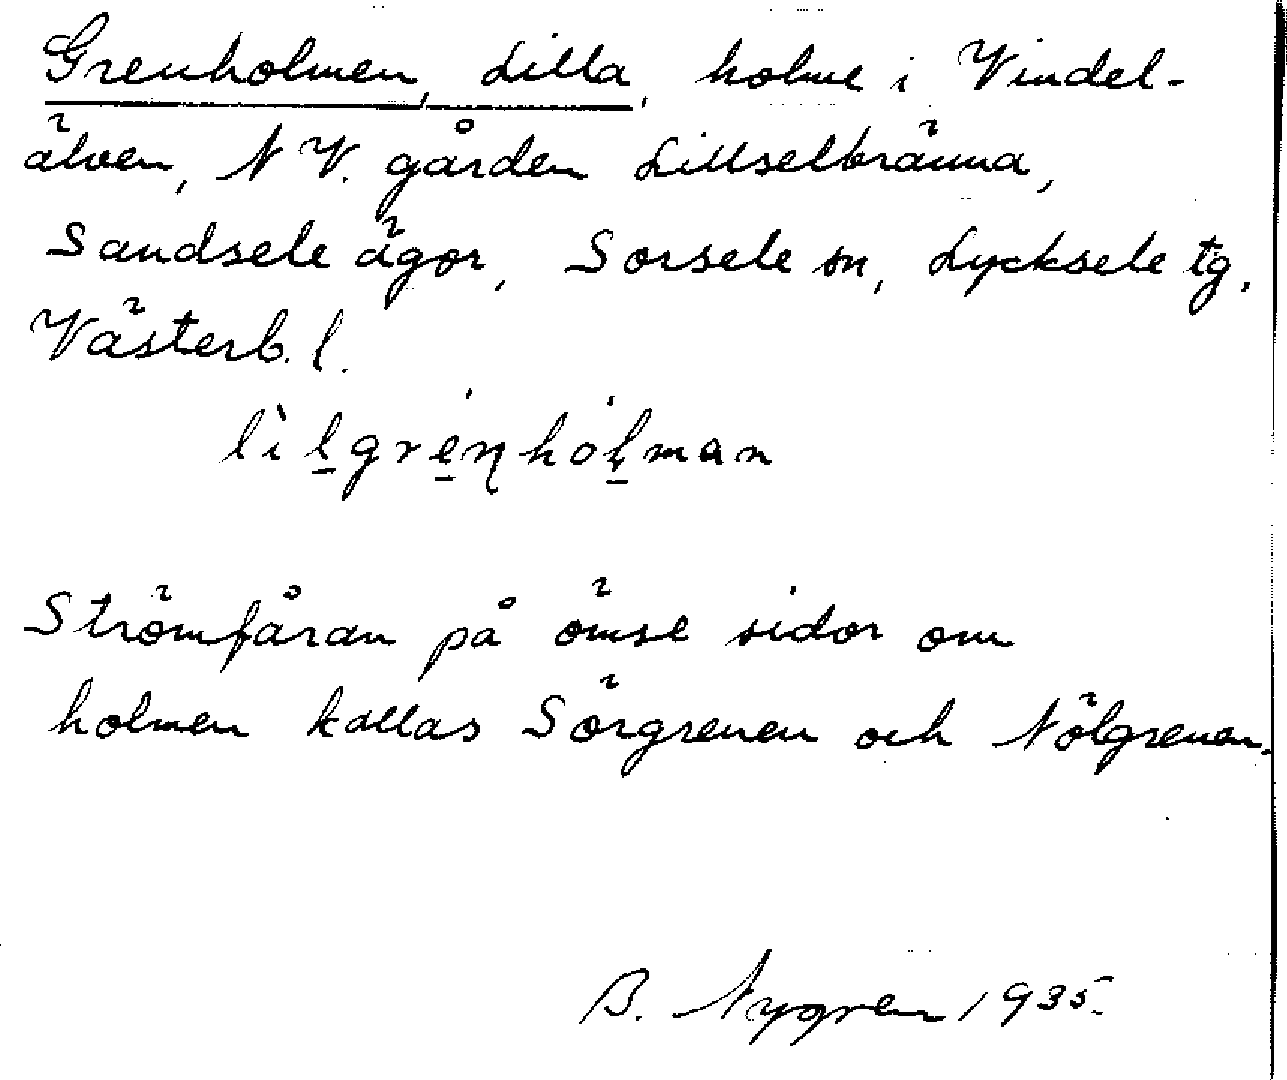 Grenholmen, Lilla, holme i Vindel-
älven, N V. gården Lillselbränna,
Sandsele ägor, Sorsele sn, Lycksele tg.
Västerb. l.
lìlgrénhólman
Strömfåran på ömse sidor om
holmen kallas Sörgrenen och Nölgrenen.
B. Nygren 1935.